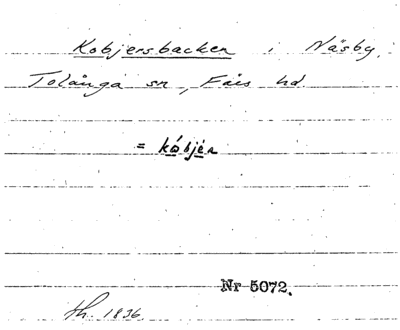 Kobjersbacken i Näsby,
Tolånga sn, Färs hd.
= kóbjér
Nr 5072.
th. 1836